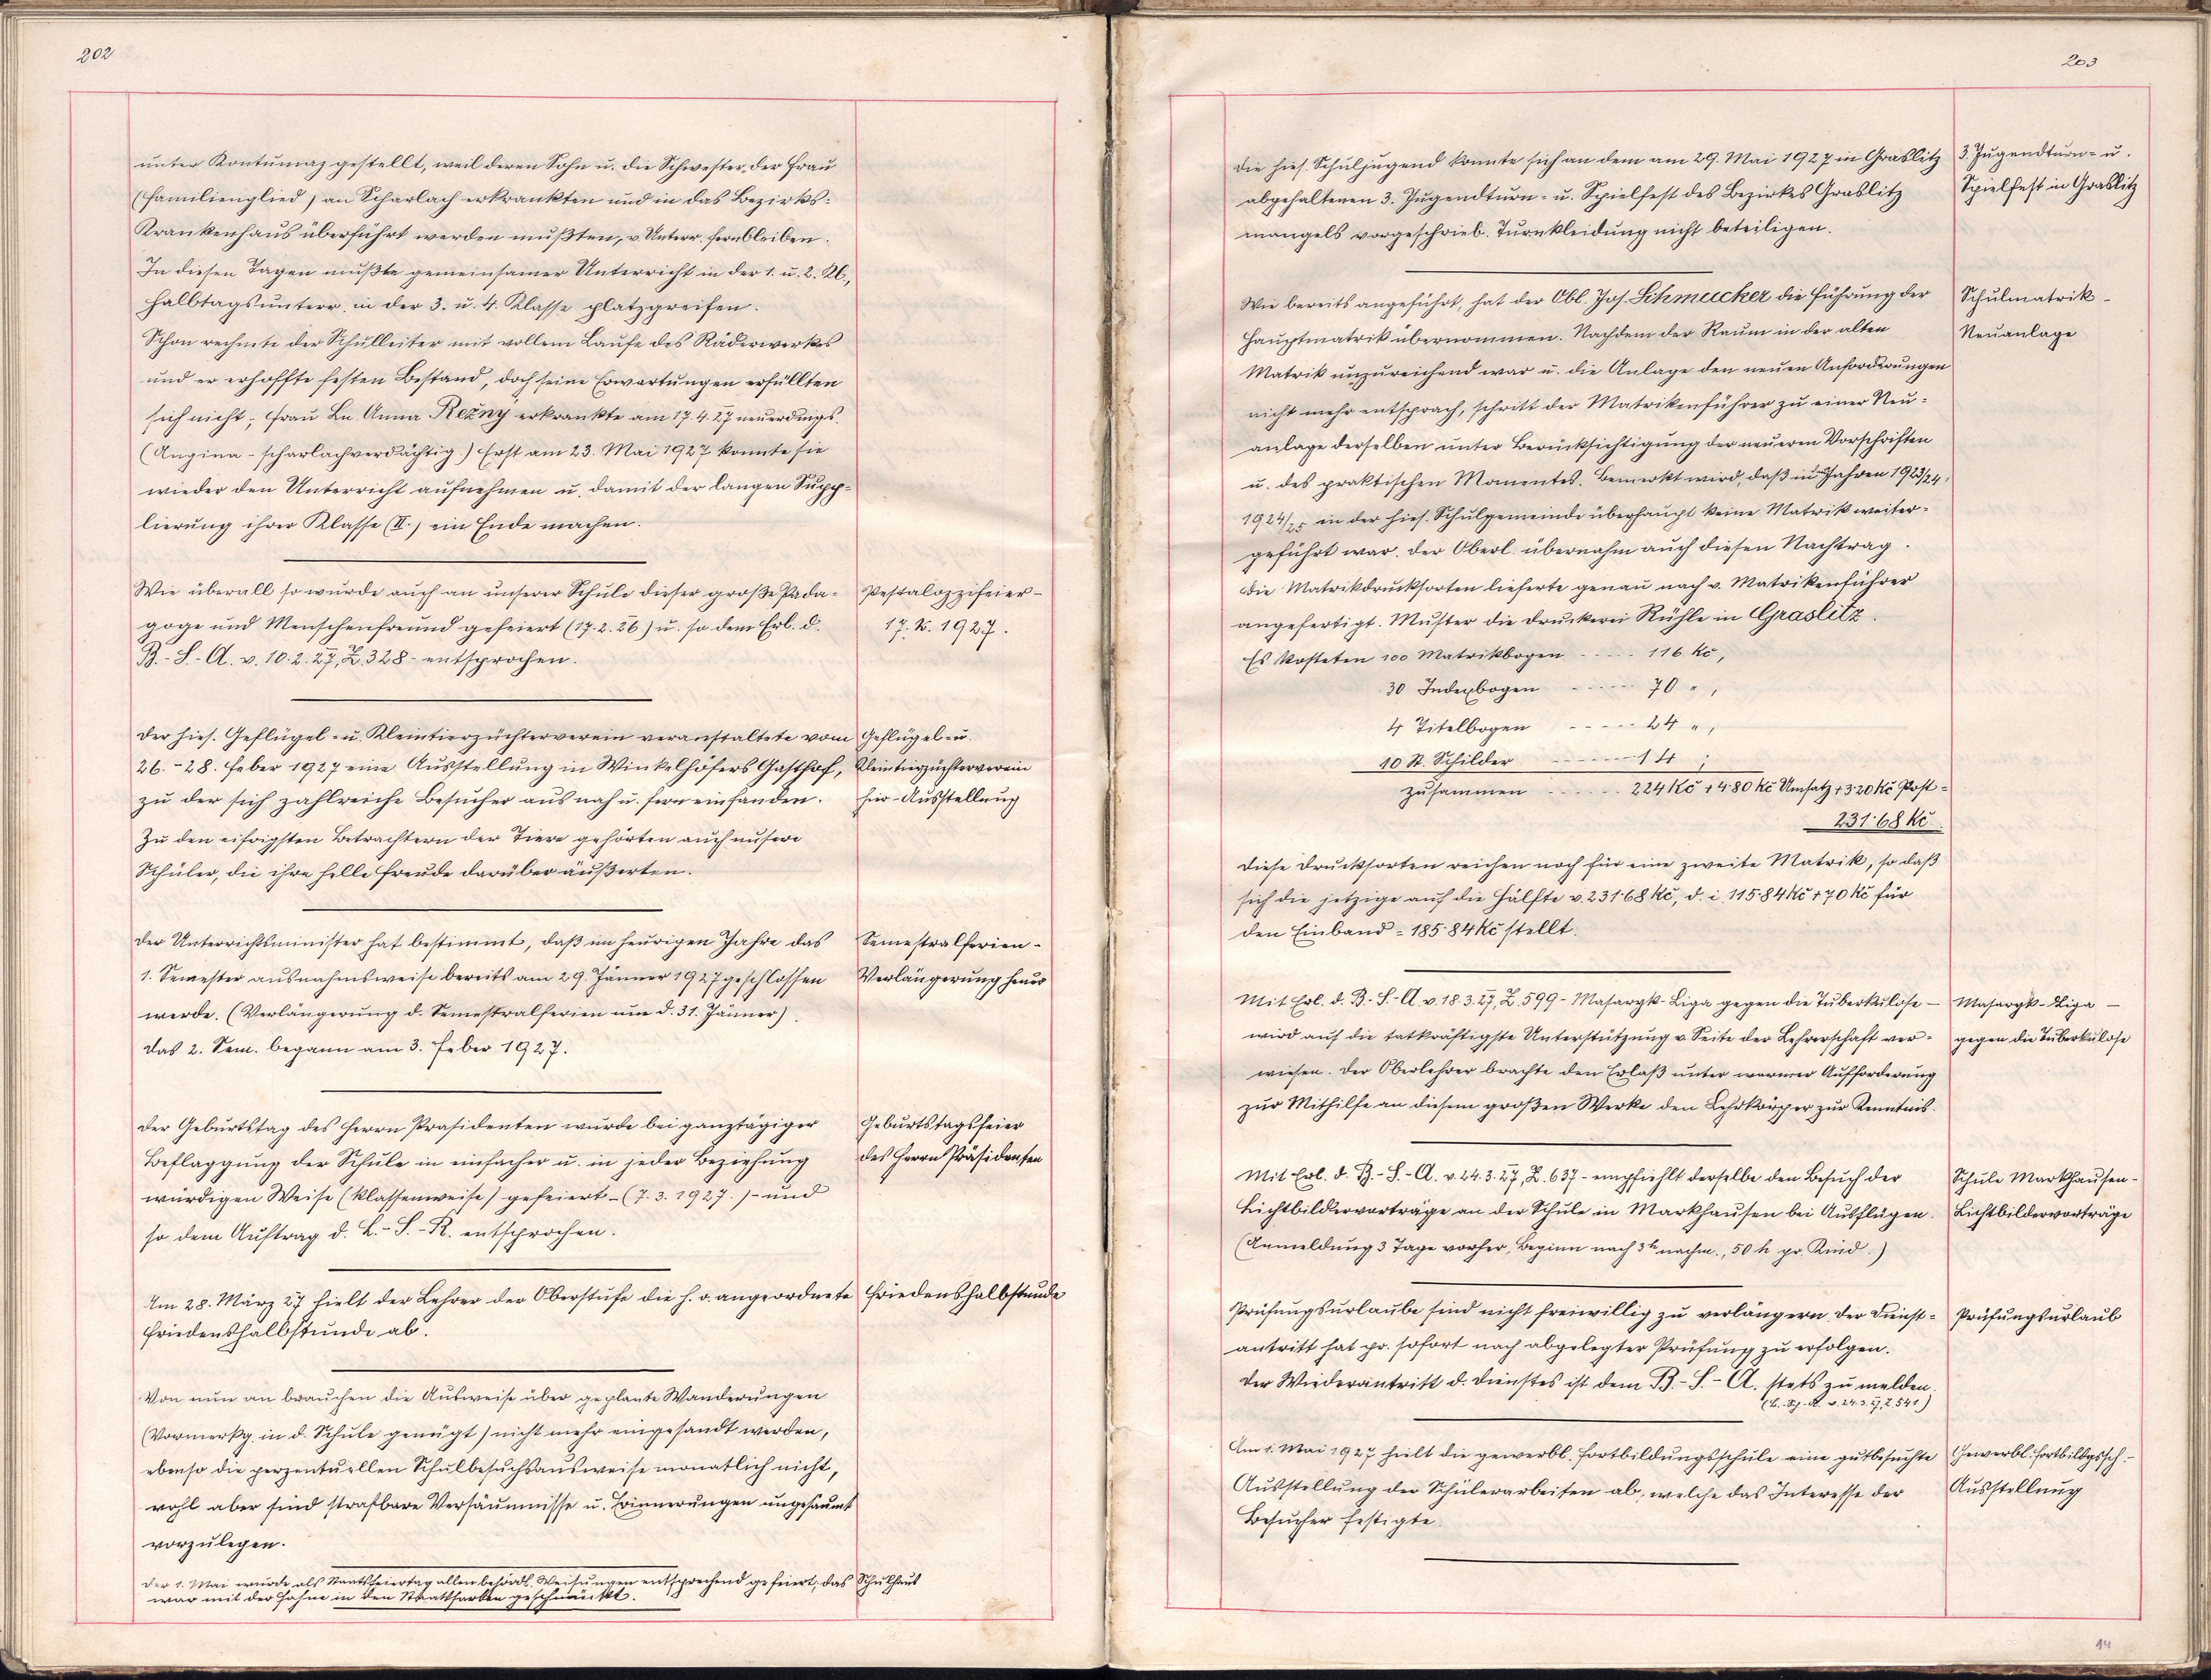 202
unter Kontumaz gestellt, weil deren Sohn u. die Schwester der Frau
(Familienglied) an Scharlach erkrankten und in das Bezirks-
Krankenhaus überführt werden mußten, v. Unterr. fernbleiben.
In diesen Tagen mußte gemeinsamer Unterricht in der 1. u. 2. Kl.,
Halbtagsunterr. in der 3. u. 4. Klasse platzgreifen.
Schon rechnete der Schulleiter mit vollem Laufe des Räderwerkes
und er erhoffte festen Bestand, doch seine Erwartungen erfüllten
sich nicht; Frau Ln. Anna Režny erkrankte am 17.4.27 neuerdings
(Angina - scharlachverdächtig.) Erst am 23. Mai 1927 konnte sie
wieder den Unterricht aufnehmen u. damit der langen Supp-
lierung ihrer Klasse (II.) ein Ende machen.
Wie überall so wurde auch an unserer Schule dieser große Päda-
goge und Menschenfreund gefeiert (17.2.26) u. so dem Erl. d.
B.-S.-A. v. 10.2.27, Z. 328 - entsprochen.
Pestalozzifeier -
17. 2. 1927.
Der hies. Geflügel- u. Kleintierzüchterverein veranstaltete vom
26.-28. Feber 1927 eine Ausstellung in Winkelhöfers Gasthof,
zu der sich zahlreiche Besucher aus nah u. fern einfanden.
Zu den eifrigsten Betrachtern der Tiere gehörten auch unsere
Schüler, die ihre helle Freude darüber äußerten.
Geflügel- u.
Kleintierzüchterverein
hier - Ausstellung
Der Unterrichtsminister hat bestimmt, daß im heurigen Jahre das
1. Semester ausnahmsweise bereits am 29. Jänner 1927 geschlossen
werde. (Verlängerung d. Semestralferien um d. 31. Jänner)
Das 2. Sem. begann am 3. Feber 1927.
Semestralferien -
Verlängerung heuer
Der Geburtstag des Herrn Präsidenten wurde bei ganztägiger
Beflaggung der Schule in einfacher u. in jeder Beziehung
würdigen Weise (klassenweise) gefeiert - (7.3.1927.) - und
so dem Auftrag d. L.-S.-R. entsprochen.
Geburtstagsfeier
des Herrn Präsidenten
Am 28. März 27 hielt der Lehrer der Oberstufe die h. o. angeordnete
Friedenshalbstunde ab.
Friedenshalbstunde
Von nun an brauchen die Ausweise über geplante Wanderungen
(Vormerkg. in d. Schule genügt) nicht mehr eingesandt werden,
ebenso die perzentuellen Schulbesuchsausweise monatlich nicht,
wohl aber sind strafbare Versäumnisse u. Erinnerungen ungesäumt
vorzulegen.
Der 1. Mai wurde als Staatsfeiertag allen behördl. Weisungen entsprechend gefeiert; das Schulhaus
war mit der Fahne in den Staatsfarben geschmückt.
203
Die hies. Schuljugend konnte sich an dem am 29. Mai 1927 in Graslitz
abgehaltenen 3. Jugendturn- u. Spielfest des Bezirkes Graslitz
mangels vorgeschrieb. Turnkleidung nicht beteiligen.
3. Jugendturn- u.
Spielfest in Graslitz
Wie bereits angeführt, hat der Obl. Jos. Schmucker die Führung der
Hauptmatrik übernommen. Nachdem der Raum in der alten
Matrik unzureichend war u. die Anlage den neuen Anforderungen
nicht mehr entsprach, schritt der Matrikenführer zu einer Neu-
anlage derselben unter Berücksichtigung der neueren Vorschriften
u. des praktischen Momentes. Bemerkt wird, daß in Jahren 1923/24,
1924/25 in der hies. Schulgemeinde überhaupt keine Matrik weiter-
geführt war. Der Oberl. übernahm auch diesen Nachtrag.
Die Matrikdrucksorten lieferte genau nach v. Matrikenführer
angefertigt. Muster die Druckerei Rühle in Graslitz.
Schulmatrik -
Neuanlage
Es kosteten 100 Matrikbogen ----- 116 Kč,
30 Indexbogen ----- 70 " ,
4 Titelbogen ----- 24 " ,
10 St. Schilder ----- 14 ;
zusammen ----- 224 Kč + 4·80 Kč Umsatz + 3·20 Kč Post =
231·68 Kč.
Diese Drucksorten reichen noch für eine zweite Matrik, so daß
sich die jetzige auf die Hälfte v. 231·68 Kč, d. i. 115·84 Kč + 70 Kč für
den Einband = 185·84 Kč stellt.
Mit Erl. d. B.-S.-A. v. 18.3.27, Z. 599 - Masaryk-Liga gegen die Tuberkulose -
wird auf die tatkräftigste Unterstützung v. Seite der Lehrerschaft ver-
wiesen. Der Oberlehrer brachte den Erlaß unter warmer Aufforderung
zur Mithilfe an diesem großen Werke den Lehrkörper zur Kenntnis.
Masaryk-Liga -
gegen die Tuberkulose
Mit Erl. d. B.-S.-A. v. 24.3.27, Z. 637 - empfiehlt derselbe den Besuch der
Lichtbildervorträge an der Schule in Markhausen bei Ausflügen.
(Anmeldung 3 Tage vorher, Beginn nach 3h nachm., 50 h pr. Kind.)
Schule Markhausen -
Lichtbildervorträge
Prüfungsurlaube sind nicht freiwillig zu verlängern. Der Dienst-
antritt hat pr. sofort nach abgelegter Prüfung zu erfolgen.
Der Wiederantritt d. Dienstes ist dem B.-S.-A. stets zu melden.
v. 24.3.27, Z. 541)
Prüfungsurlaub
Am 1. Mai 1927 hielt die gewerbl. Fortbildungsschule eine gutbesuchte
Ausstellung der Schülerarbeiten ab, welche das Interesse der
Besucher festigte.
Gewerbl. Fortbildgssch. -
Ausstellung
14